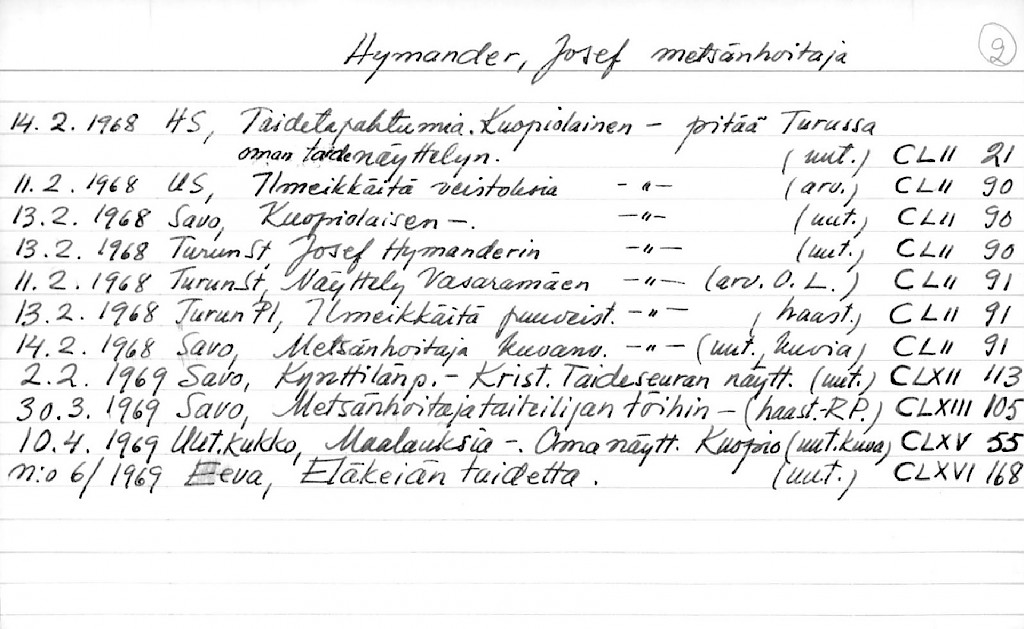 Hymander, Josef metsänhoitaja 2
14. 2. 1968 HS, Taidetapahtumia. Kuopiolainen - pitää Turussa
oman taidenäyttelyn. (uut.) CLII 21
11. 2. 1968 US, Ilmeikkäitä veistoksia -"- (arv.) CLII 90
13. 2. 1968 Savo, Kuopiolaisen -. -"- (uut.) CLII 90
13. 2. 1968 TurunSt, Josef Hymanderin -"- (uut.) CLII 90
11. 2. 1968 TurunSt, Näyttely Vasaramäen -"- (arv. O. L.) CLII 91
13. 2. 1968 TurunPl, Ilmeikkäitä puuveist. -"- , haast.) CLII 91
14. 2. 1968 Savo, Metsänhoitaja kuvanv. -"- (uut., kuvia) CLII 91
2. 2. 1969 Savo, Kynttilänp. - Krist. Taideseuran näytt. (uut.) CLXII 113
30. 3. 1969 Savo, Metsänhoitajataiteilijan töihin - (haast. R.P.) CLXIII 105
10. 4. 1969 Uut.kukko, Maalauksia -. Oma näytt. Kuopio (uut.kuva) CLXV 55
n:o 6/1969 Eeva, Eläkeiän taidetta. (uut.) CLXVI 168